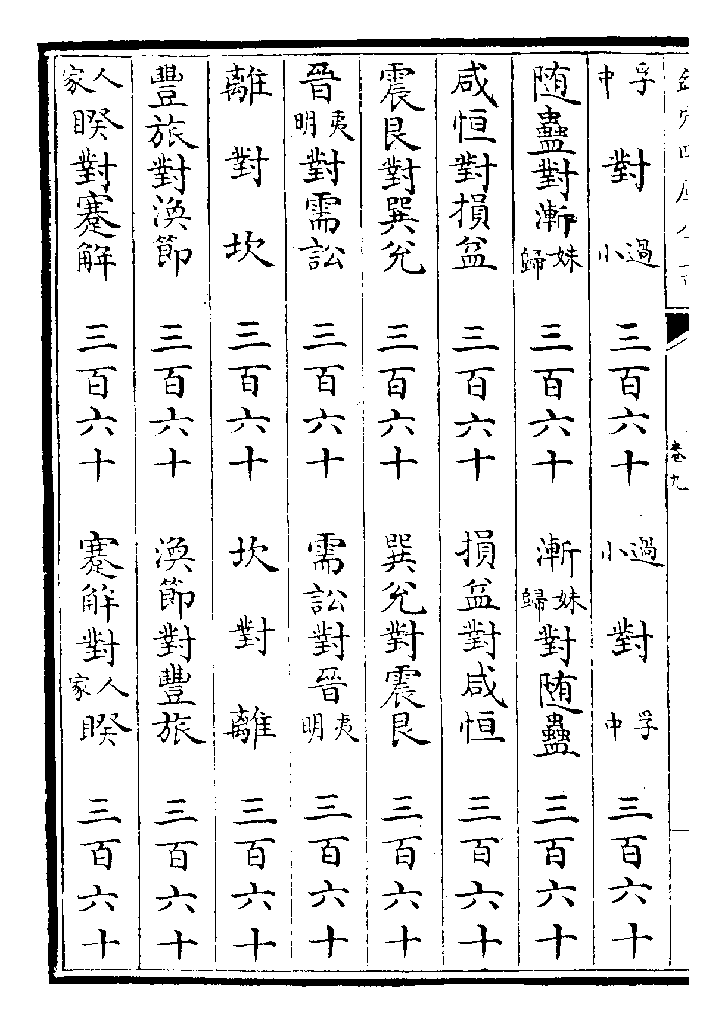 欽定四庫全書
卷九
中孚對小過 三百六十 小過對中孚 三百六十
随蠱對漸歸妹 三百六十 漸歸妹對随蠱 三百六十
咸恒對損益 三百六十 損益對咸恒 三百六十
震艮對巽兊 三百六十 巽兊對震艮 三百六十
晉明夷對需訟 三百六十 需訟對晉明夷 三百六十
離對坎 三百六十 坎對離 三百六十
豐旅對渙節 三百六十 渙節對豐旅 三百六十
家人睽對蹇解 三百六十 蹇解對家人睽 三百六十